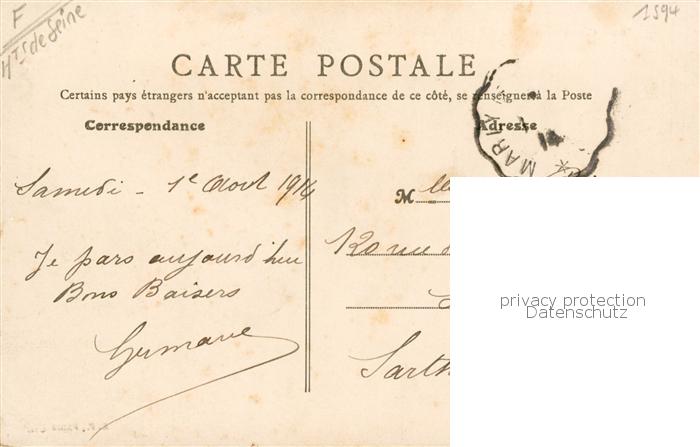 F
Hts de Seine
1594
CARTE POSTALE
Certains pays étrangers n'acceptant pas la correspondance de ce côté, se renseigner à la Poste
Correspondance
Adresse
MARLY
14
Samedi - 1e Aout 1914
Je pars aujourd'hui
Bons Baisers
Germaine
Mlle
12 rue
Sarth
privacy protection
Datenschutz